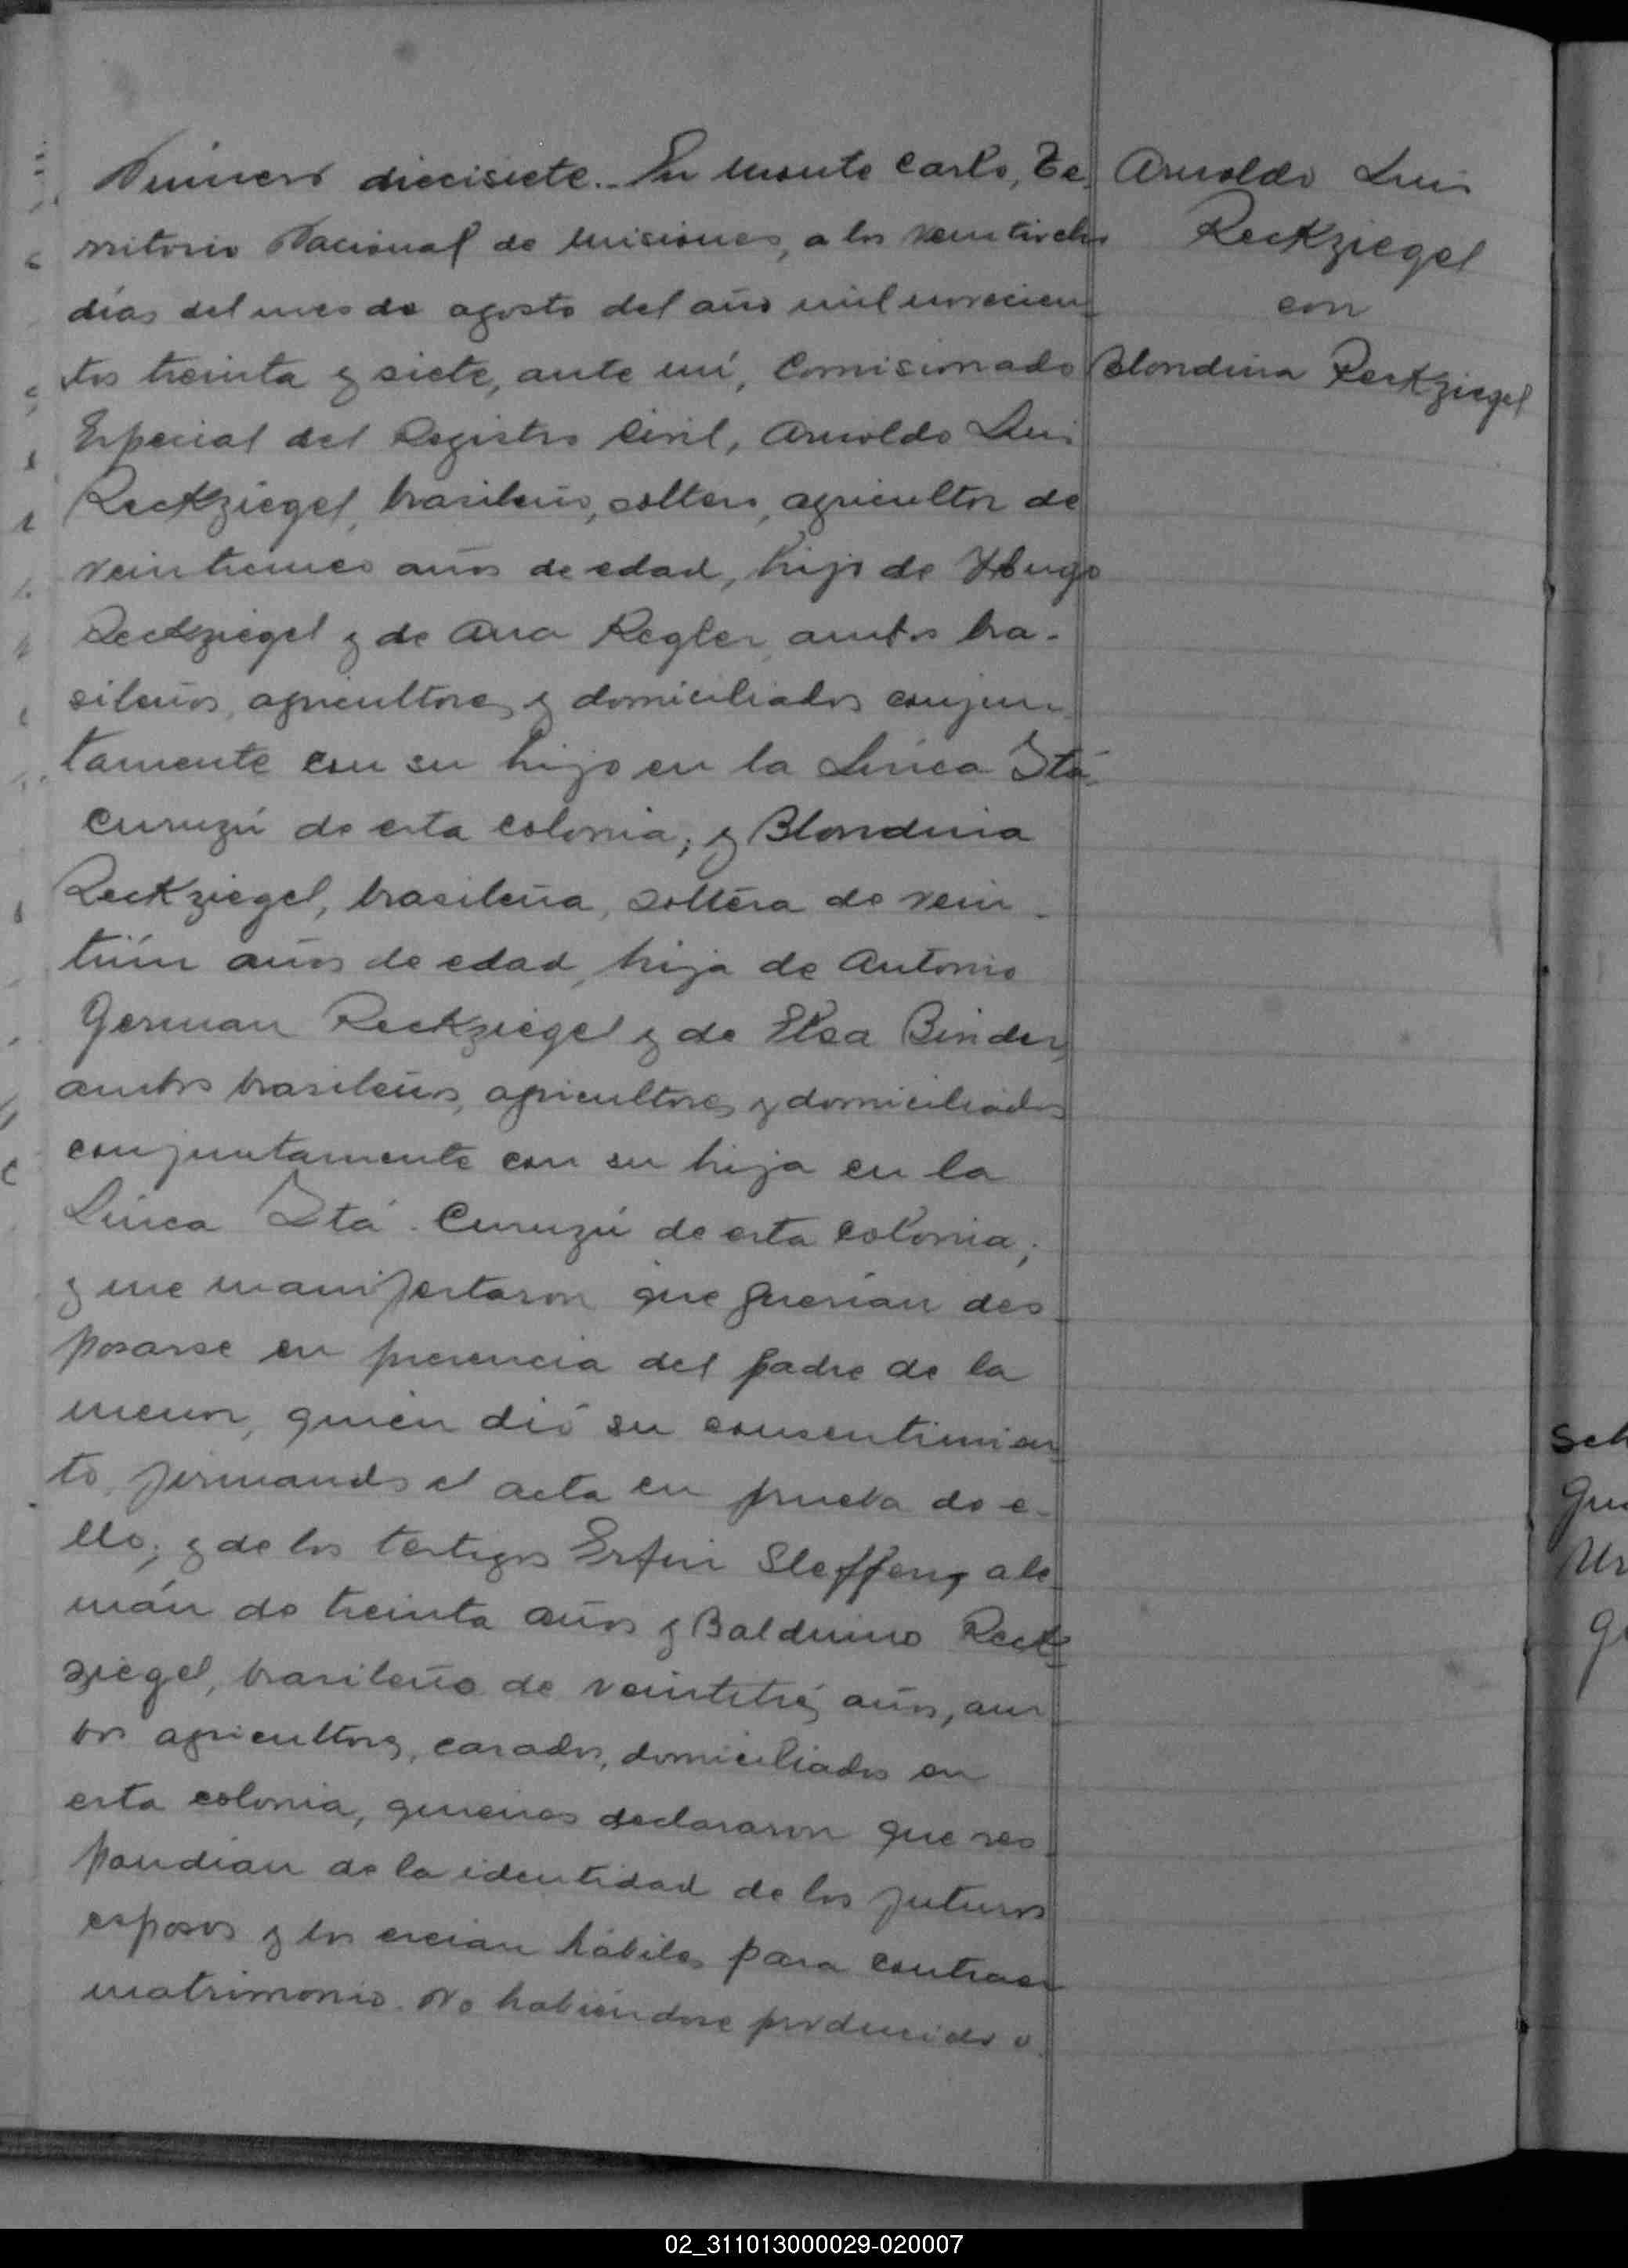 Número diecisiete.- En Monte Carlo, Te-
rritorio Nacional de Misiones, a los veintiocho
días del mes de agosto del año mil novecien-
tos treinta y siete, ante mí, Comisionado
Especial del Registro Civil, Arnoldo Luis
Reckziegel, brasileño, soltero, agricultor de
veinticinco años de edad, hijo de Hugo
Reckziegel y de Ana Regler, ambos bra-
sileños, agricultores y domiciliados conjun-
tamente con su hijo en la Línea Itá-
Curuzú de esta colonia; y Blondina
Reckziegel, brasileña, soltera de vein-
tiún años de edad, hija de Antonio
German Reckziegel y de Elsa Binder,
ambos brasileños, agricultores y domiciliados
conjuntamente con su hija en la
Línea Itá-Curuzú de esta colonia;
y me manifestaron que querían des-
posarse en presencia del padre de la
menor, quien dió su consentimien-
to, firmando el acta en prueba de e-
llo; y de los testigos Erfin Steffens, ale-
mán de treinta años y Balduino Reck-
ziegel, brasileño de veintitrés años, am-
bos agricultores, casados, domiciliados en
esta colonia, quienes declararon que res-
pondían de la identidad de los futuros
esposos y los creían hábiles para contraer
matrimonio. No habiéndose producido o-
Arnoldo Luis
Reckziegel
con
Blondina Reckziegel
Sch
02_311013000029-020007